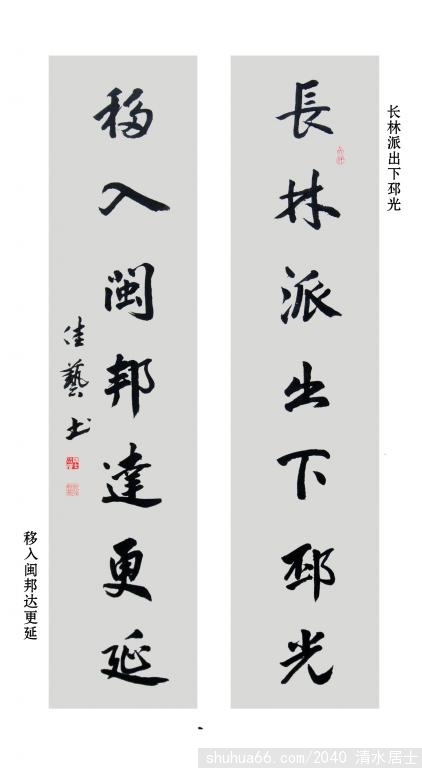 长林派出下邳光
長林派出下邳光
移入閩邦達更延
佳藝书
移入闽邦达更延
shuhua66.com/2040 清水居士